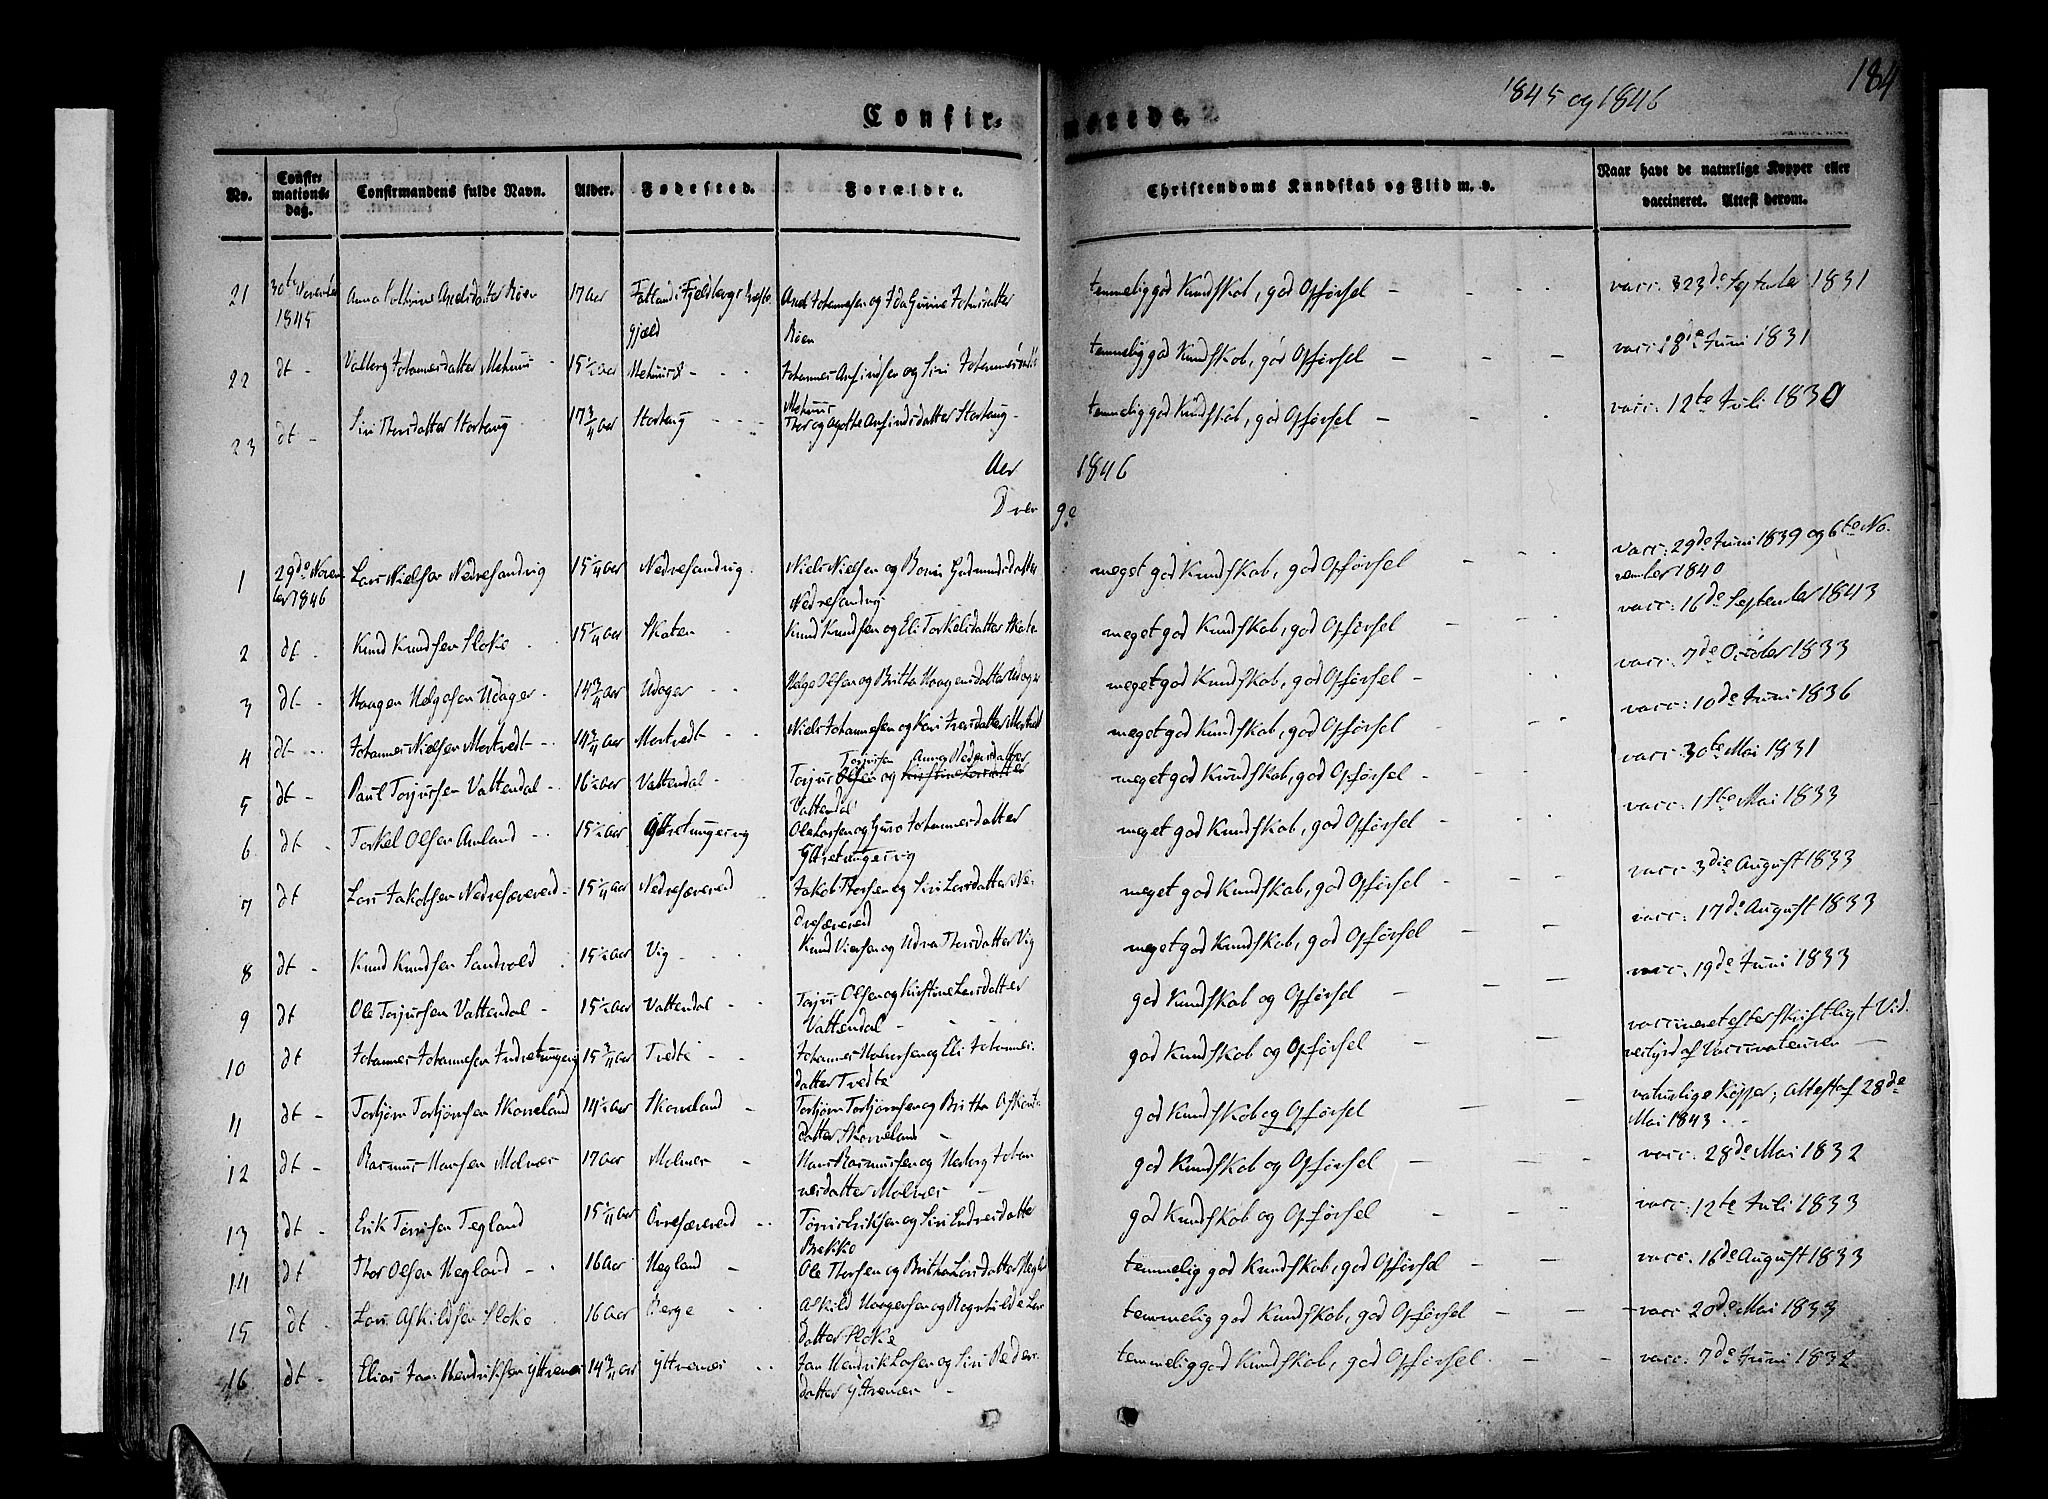 1845 og 1846
184
Confirmerede.
No.
Confirmationsdag.
Confirmandens fulde Navn.
Alder.
Fødested.
Forældre.
Christendoms Kundskab og Flid m. v.
Naar havt de naturlige Kopper eller vaccineret. Attest derom.
21 30te November 1845 Anna Axelsdatter Røen 17 Aar Fatland i Fjeldbergs Præstegjæld Axel Johannesen og Ida Gurine Johnsdatter Røen temmelig god Kundskab, god Opførsel - - vacc: 23de September 1831
22 dt - Valborg Johannesdatter Mehuus - 15 1/2 Aar Mehuus - - - Johannes Anfindsen og Siri Johannesdatter Mehuus temmelig god Kundskab, god Opførsel - - - vacc: 18de Juni 1831
23 dt - Siri Thorsdatter Storhaug 17 3/4 Aar Storhaug - - - Thor og Agathe Anfindsdatter Storhaug - temmelig god Kundskab, god Opførsel - - - vacc: 12te Juli 1830
Aar 1846
Drenge
1 29de November 1846 Lars Nielsen Nedresandvig 15 1/4 Aar Nedresandvig Niels Nielsen og Gudmundsdatter Nedresandvig meget god Kundskab, god Opførsel - - - vacc: 29de Juni 1839 og 6te November 1840
2 dt - Knud Knudsen Sloke 15 1/4 Aar Skaten - Knud Knudsen og Eli Torkelsdatter Skaten meget god Kundskab, god Opførsel - - - vacc: 16de September 1843
3 dt - Haagen Helgesen Udager - 14 3/4 Aar Udager - - Helge Olsen og Britha Haagensdatter Udager meget god Kundskab, god Opførsel - - vacc: 7de October 1833
4 dt - Johannes Nielsen Mortvedt - 14 3/4 Aar Mortvedt - - Niels Johannesen og Kari Iversdatter Mortvedt meget god Kundskab, god Opførsel - - vacc: 10de Juni 1836
5 dt - Paul Torjursen Vattendal - 16 1/2 Aar Vattendal - Torjus Olsen Torjursen og Kirstine Larsdatter Anna Pedersdatter Vattendal meget god Kundskab, god Opførsel - - vacc: 30te Mai 1831
6 dt - Torkel Olsen - 15 1/2 Aar Ole Larsen og Guro Johannesdatter meget god Kundskab, god Opførsel - - vacc: 1ste Mai 1833
7 dt Lars Jakobsen Nedresævereid - 15 1/4 Aar Nedresævereid Jakob Thorsen og Siri Larsdatter Nedresævereid meget god Kundskab, god Opførsel - - - vacc: 3die August 1833
8 dt - Knud Knudsen Sandvold 15 1/2 Aar Vig - - - Knud Viersen og Thorsdatter Vig meget god Kundskab, god Opførsel - - - vacc: 17de August 1833
9 dt Ole Torjursen Vattendal - 15 1/2 Aar Vattendal - - Torjus Olsen og Kirstine Larsdatter Vattendal - - - god Kundskab og Opførsel - - - vacc: 19de Juni 1833
10 dt Johannes Johannesen 15 3/4 Aar Tvedte - - Johannes og Eli Johannesdatter Tvedte god Kundskab og Opførsel - - vaccineret efter skriftligt Vidnesbyrd af Vaccinateuren -
11 dt - Torbjørn Torbjørnsen Skorveland 14 1/2 Aar Skorveland - Torbjørn Torbjørnsen og Britha datter Skorveland - god Kundskab og Opførsel - - naturlige Kopper; Attest af 28de Mai 1843 - -
12 dt - Rasmus Hansen Molnes 17 Aar Molnes - Hans Rasmussen og Herborg Johannesdatter Molnes - god Kundskab og Opførsel - - - vacc: 28de Mai 1832
13 dt - Erik Torrisen Tegland 15 1/4 Aar Øvresævereid - - Torris Eriksen og Siri Endresdatter Bekke god Kundskab og Opførsel - - - vacc: 12te Juli 1833
14 dt Thor Olsen Hegland - - 16 Aar Hegland - Ole Thorsen og Britha Larsdatter Hegland temmelig god Kundskab, god Opførsel - - vacc: 16de August 1833
15 dt - Lars Askildsen Sloke 16 Aar Berge - - Askild Haagensen og Ragnhilde Larsdatter Sloke temmelig god Kundskab, god Opførsel - - - vacc: 20de Mai 1833
16 dt - Elias Jan Hendriksen Yttrenes 14 3/4 Aar Yttrenes - - Jan Hendrik Larsen og Siri Pedersdatter Yttrenes - temmelig god Kundskab, god Opførsel - - - vacc: 7de Juni 1832